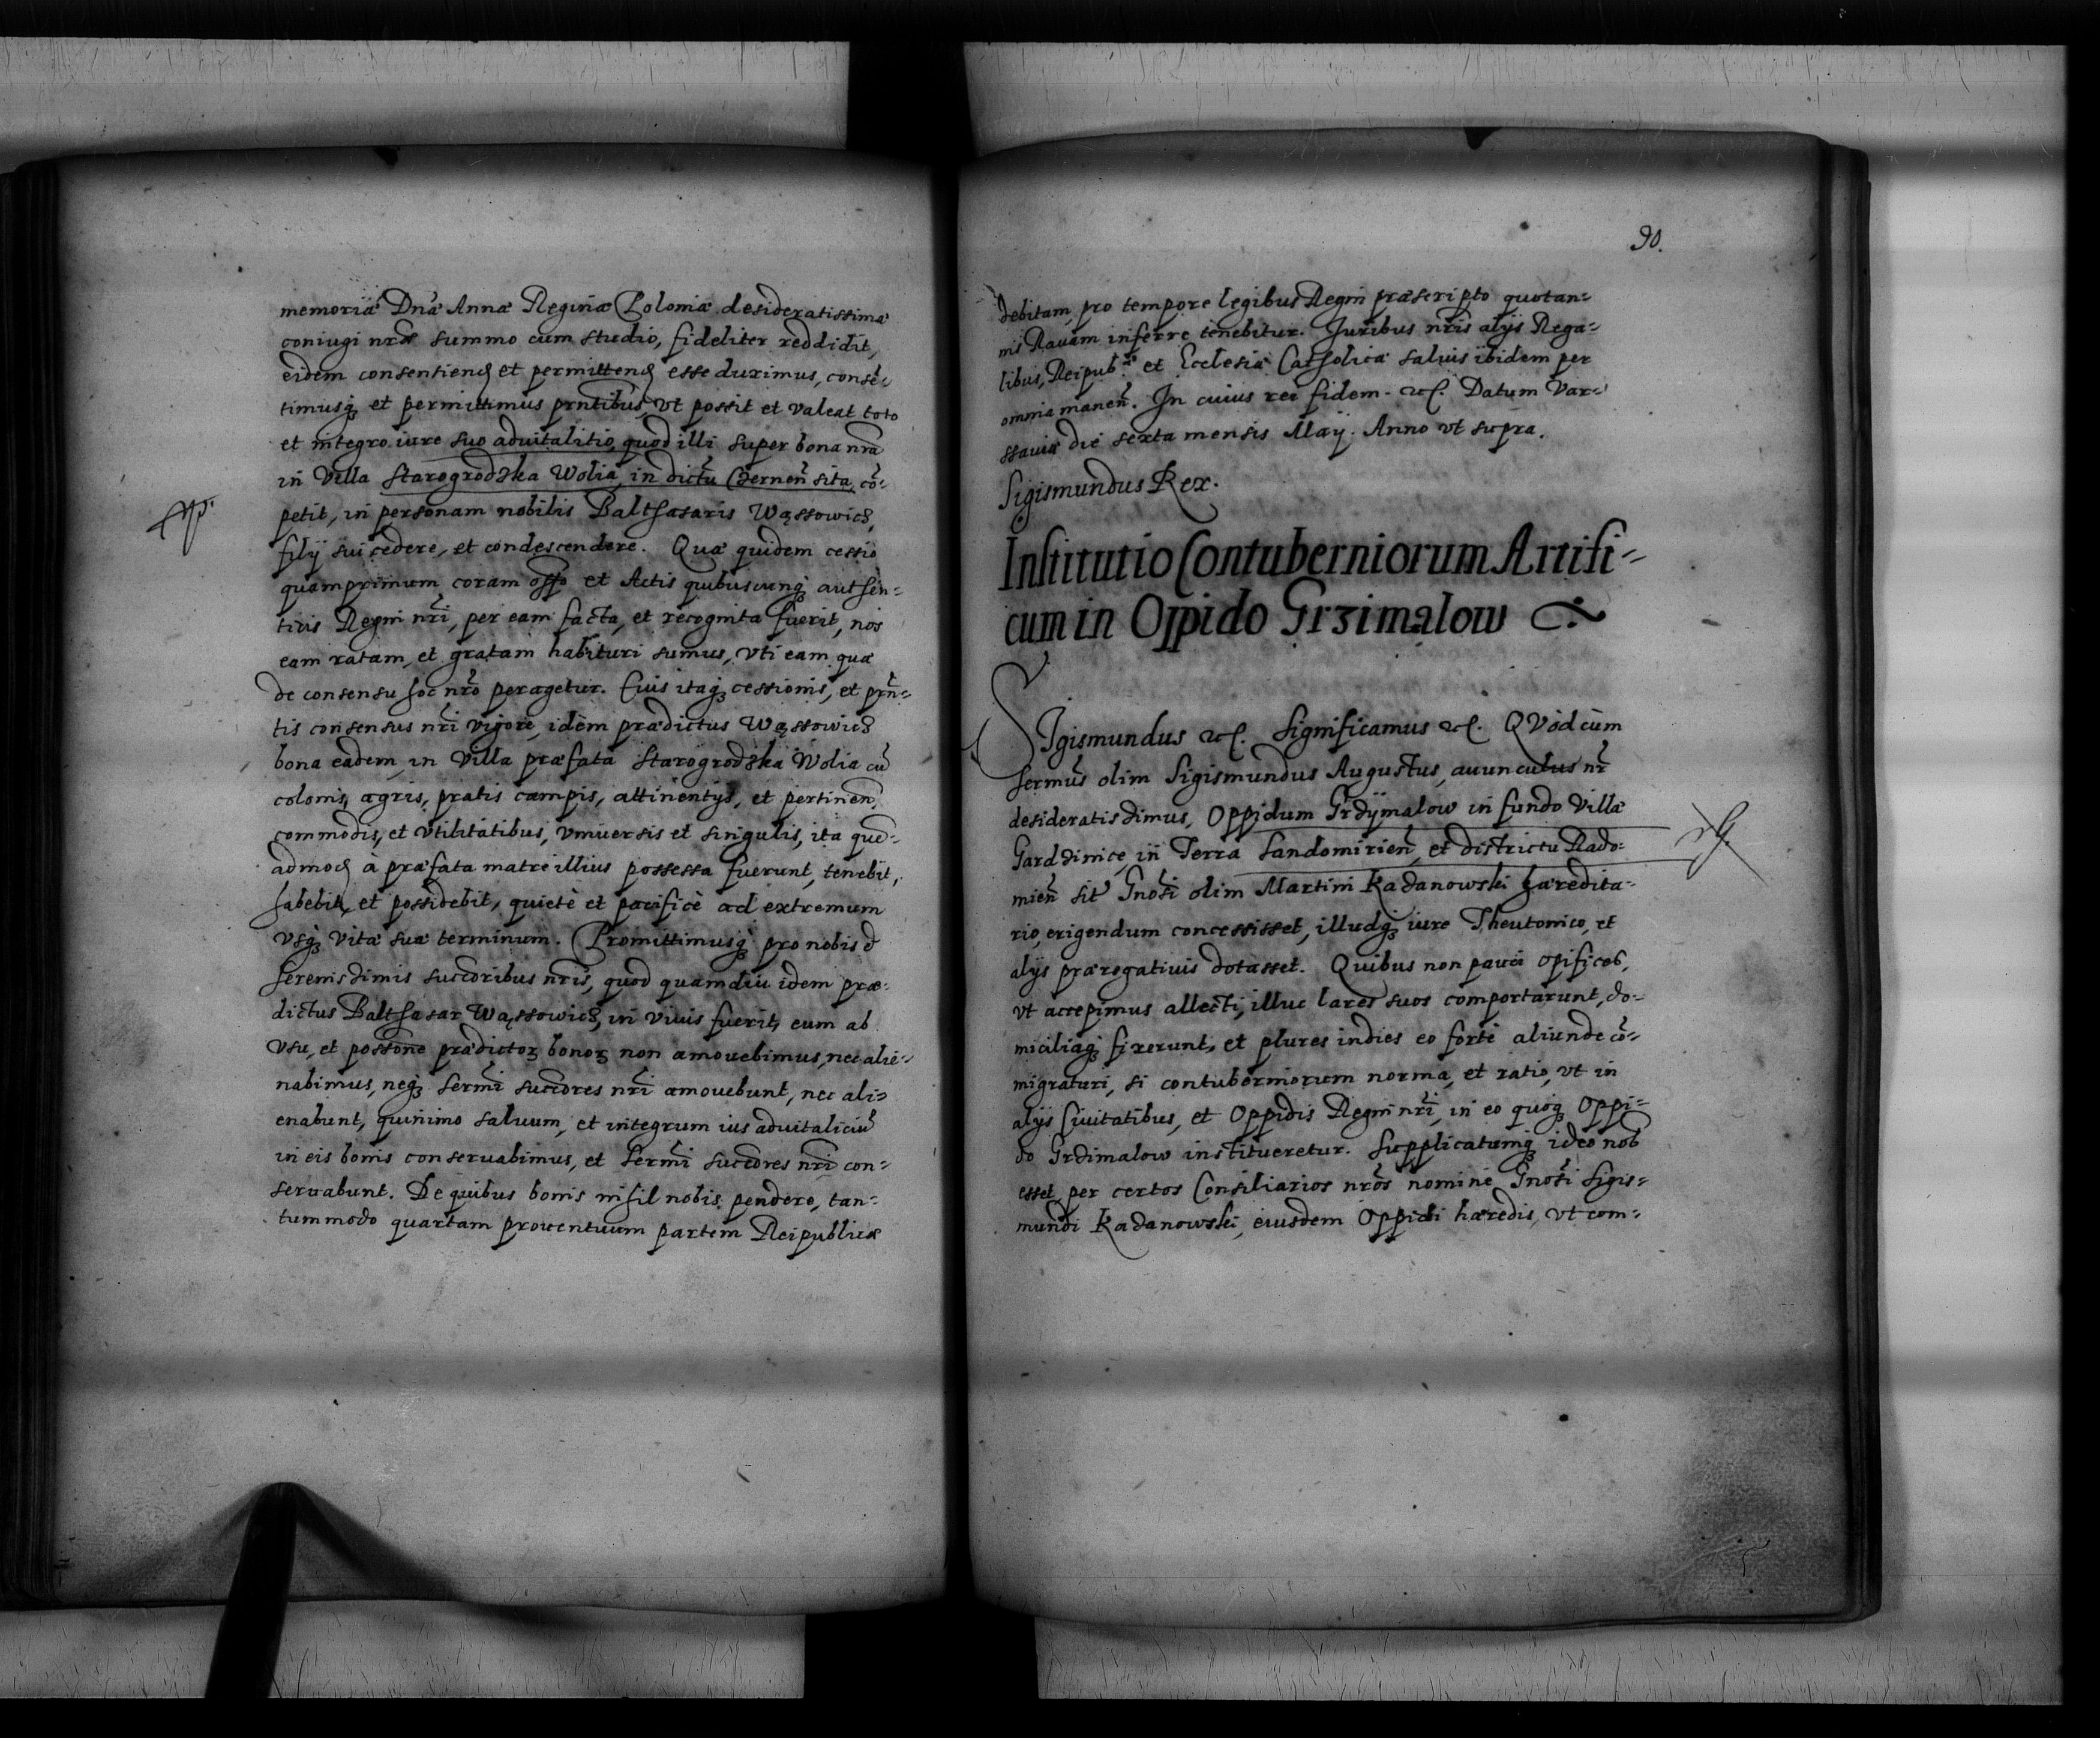 memoriæ Dnæ Annæ Reginæ Poloniæ desideratissimæ
coniugi nræ summo cum studio, fideliter reddidit,
eidem consentiend et permittend esse duximus, consē-
timusq; et permittimus prntibus, vt possit et valeat toto
et integro iure suo aduitalitio, quod illi super bona nra
in Villa Starogrodzka Wolia, in dictu Czernen sita, cō-
petit, in personam nobilis Balthasaris Wąssowicz,
filij sui cedere, et condescendere. Quæ quidem cessio
quamprimum coram offo et Actis quibuscunq; authen-
ticis Regni nri, per eam facta, et recognita fuerit, nos
eam ratam, et gratam habituri sumus, vti eam quæ
de consensu hoc nro peragetur. Cuius itaq; cessionis, et prn-
tis consensus nri vigore, idem prædictus Wąssowicz
bona eadem, in Villa præfata Starogrodzka Wolia cū
colonis, agris, pratis campis, attinentys, et pertinen,
commodis, et vtilitatibus, vniuersis et singulis, ita que-
admod à præfata matre illius possessa fuerunt, tenebit,
habebit, et possidebit, quietè et pacificè ad extremum
vsq; vitæ suæ terminum. Promittimusq; pro nobis et
serenissimis succoribus nris, quod quamdiu idem præ-
dictus Balthasar Wąssowicz, in viuis fuerit, eum ab
vsu, et possone prædictor bonor non amouebimus, nec alie-
nabimus, neq; sermi succores nri amouebunt, nec ali-
enabunt, quinimo saluum, et integrum ius aduitaliciū
in eis bonis conseruabimus, et sermi succores nri con-
seruabunt. De quibus bonis nihil nobis pendere, tan-
tummodo quartam prouentuum partem Reipublicæ
90.
debitam, pro tempore legibus Regni præscripto quotan-
nis Rauam inferre tenebitur. Juribus nris alys Rega-
libus, Reipub.æ et Ecclesiæ Catholicæ saluis ibidem per
omnia manen. In cuius rei fidem. etc. Datum Var-
ssauiæ die sexta mensis May. Anno vt supra.
Sigismundus Rex.
Institutio Contuberniorum Artifi-
cum in Oppido Grzimalow
Sigismundus etc. Significamus etc. QVòd cùm
sermus olim Sigismundus Augustus, auunculus nr
desideratissimus, Oppidum Grzÿmalow in fundo Villæ
Gardzinice, in Terra Sandomirien, et districtu Rado-
mien sit Gnosi olim Martini Kazanowski hæredita-
rio, erigendum concessisset, illudq; iure Theutonico, et
alys prærogatiuis dotasset. Quibus non pauci opifices,
vt accepimus allecti, illuc lares suos comportarunt, do-
miciliaq; fixerunt, et plures indies eo fortè aliunde cō-
migraturi, si contuberniorum norma, et ratio, vt in
alys Ciuitatibus, et Oppidis Regni nri, in eo quoq; Oppi-
do Grzimalow institueretur. Supplicatumq; ideo nob
esset per certos Consiliarios nros nomine Gnosi Sigis-
mundi Kazanowski, eiusdem Oppidi hæredis, vt com-